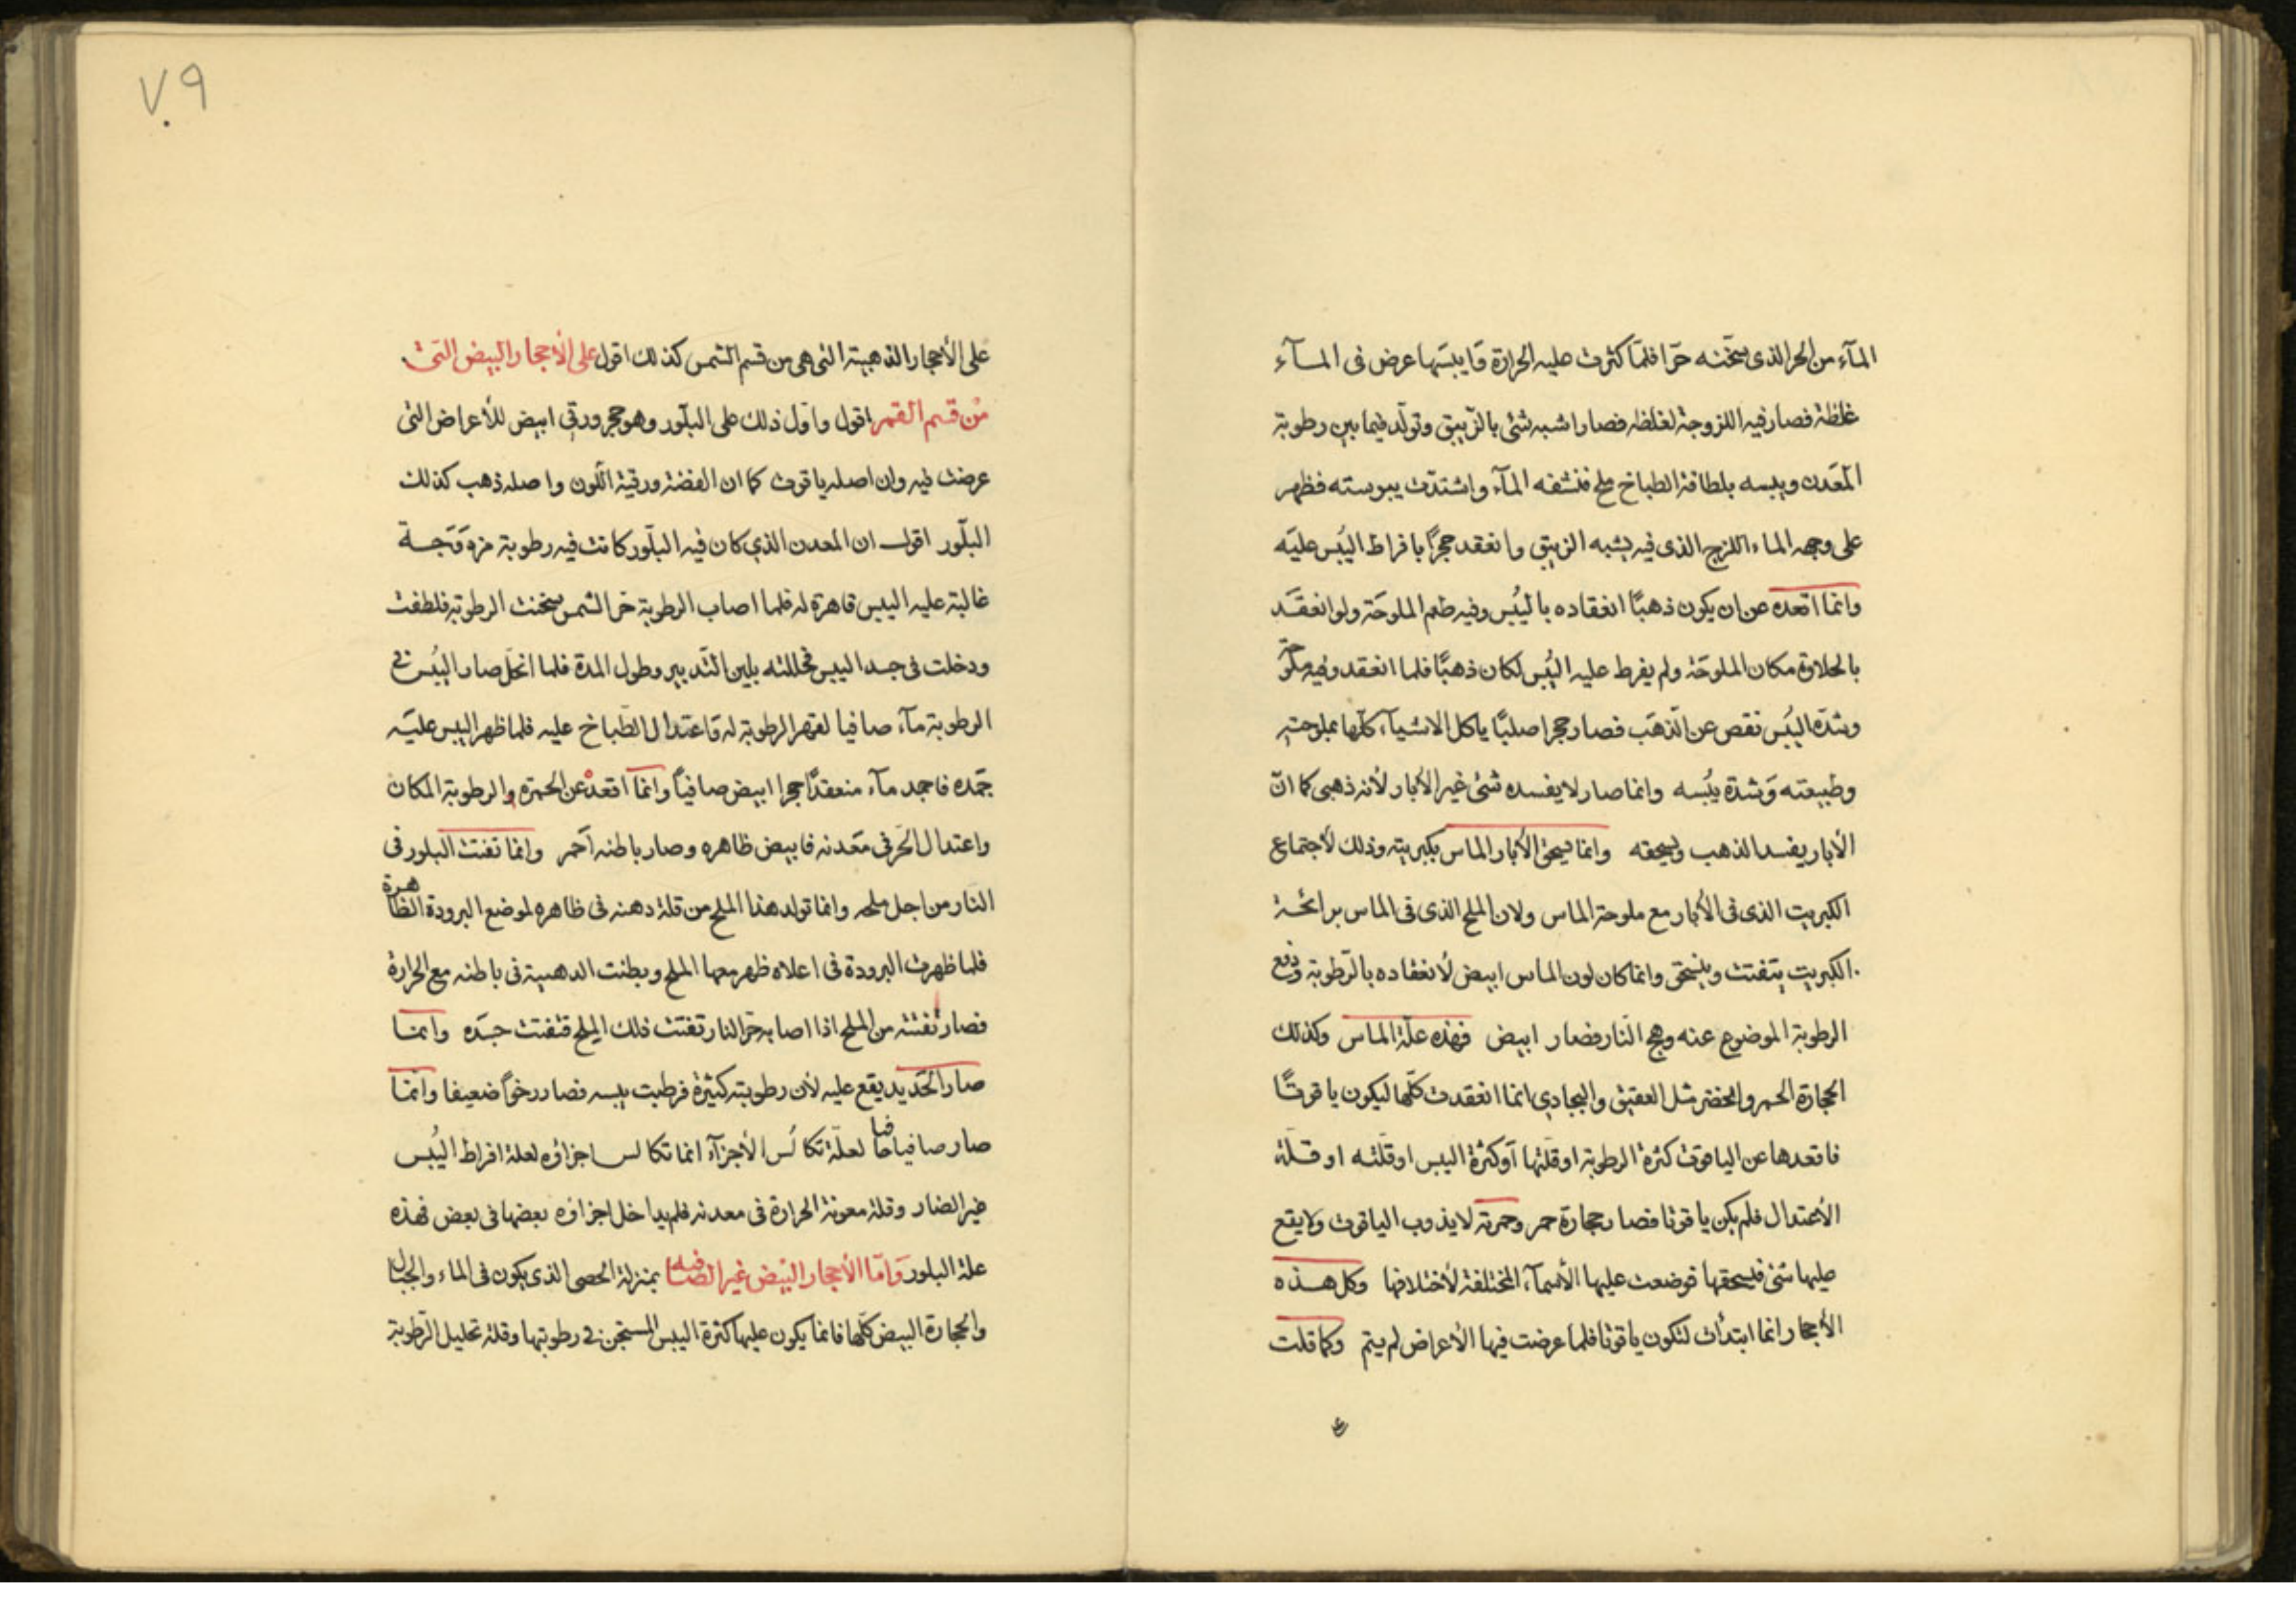 المآء من الحر الذى سخّنه حرّا فلمّا كثرت عليه الحرارة وَايبسَتها عرض فى المآء
غلظة فصار فيه اللزوجة لغلظه فصار اشبه شئ بالزّيبق وتولّد فيما بين رطوبة
المَعدن ويبسه بلطافة الطباخ ملح فنشفه المآء واشتدّت يبوسته فظهر
على وجه الماء اللزج الذى فيه يشبه الزيبق وانعقد حجرًا بافراط اليُبس عليَه
وانما اقعده عن ان يكون ذهبًا انعقاده باليُبس وفيه طعم الملوحَة ولو انعقَد
بالحلاوة مكان الملوحَة ولم يفرط عليه اليُبس لكان ذهبًا فلما انعقد وفيه ملوحة
وشدّة اليُبس نقص عن الذهَب فصار حجرا صلبًا ياكل الاشيآء كلّها بملوحته
وطبيعته وَشدة يبُسه وانما صار لا يفسده شئ غير الأبار لأنه ذهبى كما انّ
الأبار يفسد الذهب ويسحقه وانما يسحق الأبار الماس بكبريته وذلك لأجتماع
الكبريت الذى فى الأبار مع ملوحة الماس ولان الملح الذى فى الماس برائحة
الكبريت يتفتت وينسحق وانما كان لون الماس ابيض لأنعقاده بالرّطوبة ودفع
الرطوبة الموضوع عنه وهج النّار فصار ابيض فهذه علّة الماس وكذلك
الحجارة الحمر والخضر مثل العقيق والبجادي انما انعقدت كلّها ليكون ياقوتًا
فاقعدها عن الياقوت كثرة الرطوبة او قلّتها أوكثرة اليبس او قلّته او قلّة
الأعتدال فلم يكن ياقوتا فصار حجارة حمر وحمرته لا يذوب الياقوت ولا يقع
عليها شئ فيسحقها فوضعت عليها الأسمآء المختلفة لأختلافها وكل هذه
الأحجار انما ابتدأت لتكون ياقوتا فلما عرضت فيها الأعراض لم يتم وكما قلت
٧٩
على الأحجار الذهبية التى هى من قسم الشمس كذلك اقول على الأحجار البيض التى
من قسم القمر اقول واوّل ذلك على البلّور وهو حجر ورقى ابيض للأعراض التى
عرضت فيه وان اصله ياقوت كما ان الفضة ورقية اللّون واصله ذهب كذلك
البلّور اقول ان المعدن الذي كان فيه البلّور كانت فيه رطوبة
غالبة عليه اليبس قاهرة له فلما اصاب الرطوبة حر الشمس سخنت الرطوبة فلطفت
ودخلت فى جسد اليبس فحللته بلين التّدبير وطول المدة فلما انحلّ صار اليُبس فى
الرطوبة مآء صافيا لقهر الرطوبة له وَاعتدال الطّباخ عليه فلما ظهر اليبس عليَه
جمّده فاجمد مآء منعقدًا حجرا ابيض صافيًا وانما اقعده عن الحمرة والرطوبة المكان
واعتدال الحَر فى مَعدنه فابيض ظاهره وصار باطنه أحمَر وانما تفتت البلور فى
النار من اجل ملحه وانما تولد هذا الملح من قلة دهنه فى ظاهره لموضع البرودة الظاهرة
فلما ظهرت البرودة فى اعلاه ظهر معها الملح وبطنت الدهنية فى باطنه مع الحرارة
فصار تفتته من الملح اذا اصابه حرّ النار تفتت ذلك الملح فتفتت جسَده وانما
صار الحَديد يقع عليه لأن رطوبته كثيرة فرطبت يبسه فصار رخوًا ضعيفا وانما
صار صافيا لعلّة تكالُس الأجزآء انما تكالس اجزاؤه لعلة افراط اليُبس
غير الضار وقلة معونة الحرارة فى معدنه فلم يداخل اجزاؤه بعضها فى بعض فهذه
علة البلور وَامّا الأحجار البيض غير الصافيه بمنزلة الحصى الذى يكون فى الماء والجبال
والحجارة البيض كلّها فانما يكون عليها كثرة اليبس المستجن فى رطوبتها وقلة تحليل الرّطوبة